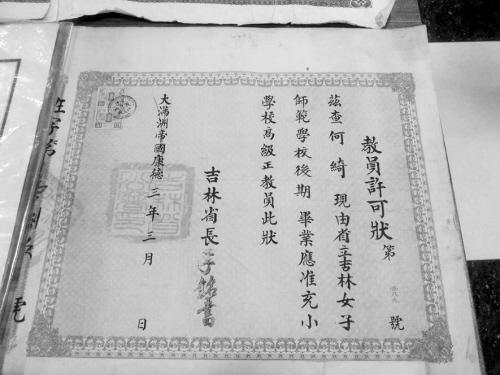 教員許可狀 第 號
茲查何綺 現由省立吉林女子
師範學校後期 畢業應准充小
學校高級正教員此狀
吉林省長李銘書
大滿洲帝國康德三年三月 日
號